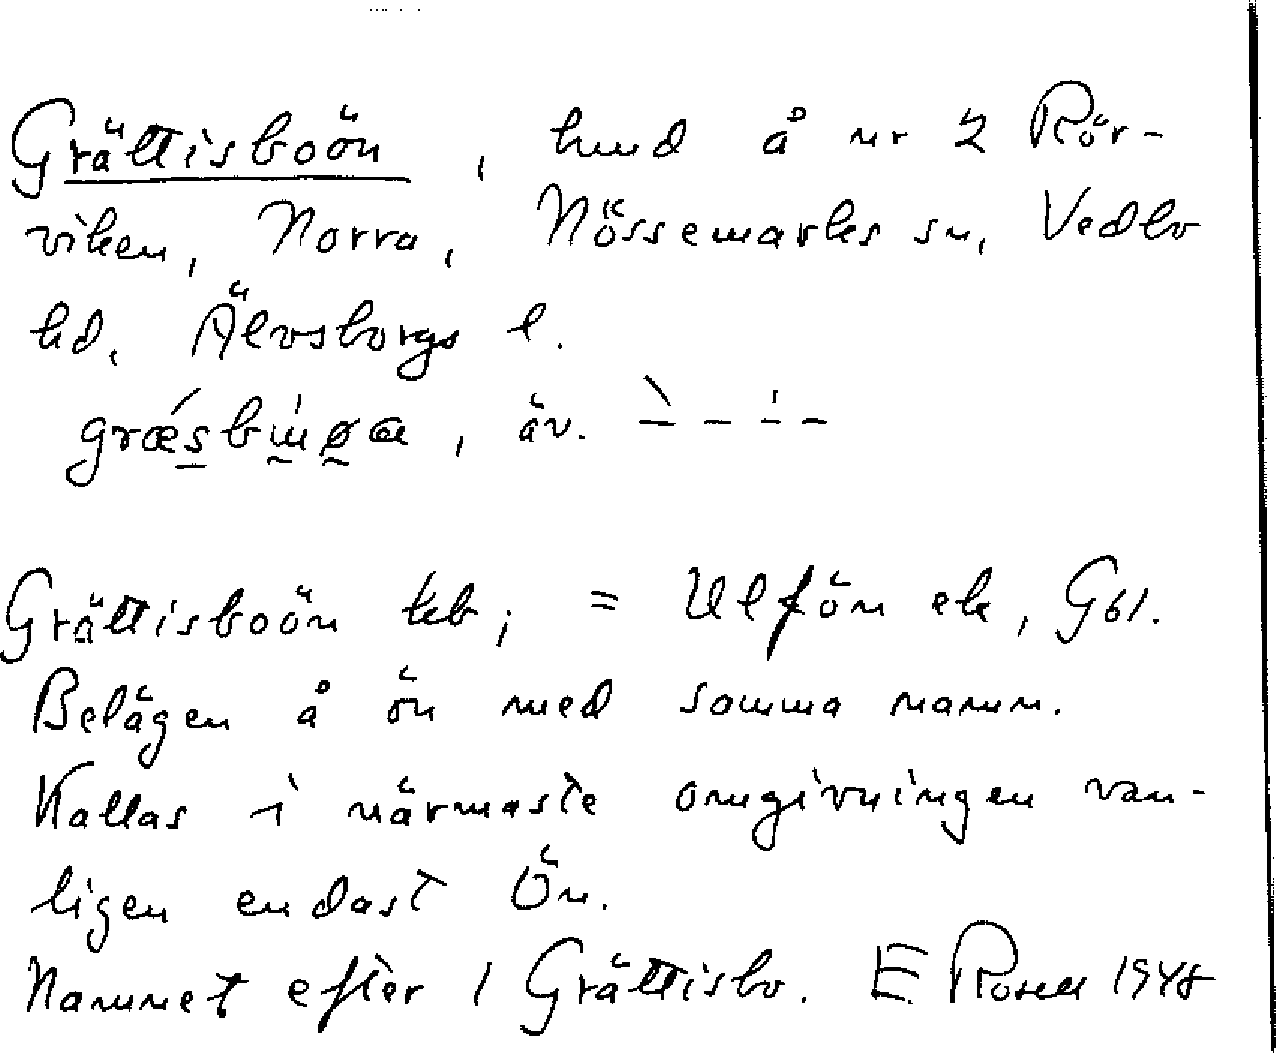 Grättisboön, hmd å nr 2 Rör-
viken, Norra, Nössemarks sn, Vedbo
hd, Älvsborgs l.
äv.
Grättisboön tcb; = Ulfön ek, G61.
Belägen å ön med samma namn.
Kallas i närmaste omgivningen van-
ligen endast Ön.
Namnet efter 1 Grättisbo. E Rosell 1948